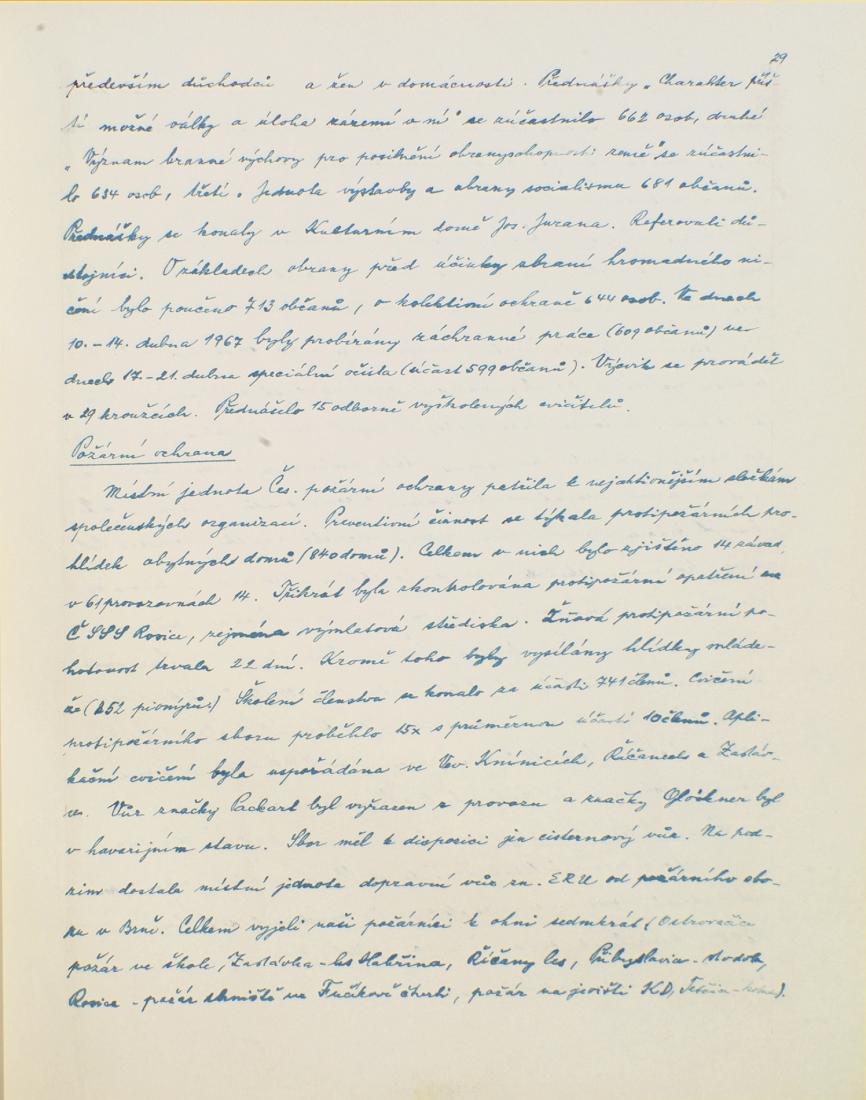 29
především důchodců a žen v domácnosti. Přednášky „Charakter příš-
tí možné války a úloha zázemí v ní" se zúčastnilo 662 osob, druhé
„Význam branné výchovy pro posílnění obranyschopnosti země" se zúčastni-
lo 634 osob, třetí „Jednota výstavby a obrany socialismu 681 občanů.
Přednášky se konaly v Kulturním domě Jos. Jurana. Referovali dů-
stojníci. O základech obrany před účinky zbraní hromadného ni-
čení bylo poučeno 713 občanů, o kolektivní ochraně 644 osob. Ve dnech
10. - 14. dubna 1967 byly probírány záchranné práce (609 občanů) ve
dnech 17. - 21. dubna speciální očista (účast 599 občanů). Výcvik se prováděl
v 29 kroužcích. Přednášelo 15 odborně vyškolených cvičitelů.
Požární ochrana
Místní jednota Čes. požární ochrany patřila k nejaktivnějším složkám
společenských organizací. Preventivní činnost se týkala protipožárních pro-
hlídek obytných domů (840 domů). Celkem v nich bylo zjištěno 14 závad,
v 61 provozovnách 14. Třikrát byla zkontrolována protipožární opatření na
ČSSS Rosice, zejména výmlatová střediska. Žňová protipožární po-
hotovost trvala 22 dní. Kromě toho byly vysílány hlídky mláde-
že (252 pionýrů). Školení členstva se konalo za účasti 741 členů. Cvičení
protipožárního sboru proběhlo 15x s průměrnou účastí 10 členů. Apli-
kační cvičení byla uspořádána ve Vev. Knínicích, Říčanech a Zastáv-
ce. Vůz značky Packart byl vyřazen z provozu a značky Glöckner byl
v havarijním stavu. Sbor měl k disposici jen cisternový vůz. Na pod-
zim dostala místní jednota dopravní vůz zn. ERU od požárního sbo-
ru v Brně. Celkem vyjeli naši požárníci k ohni sedmkrát (Ostrovačice
požár ve škole, Zastávka - les Habřina, Říčany les, Přibyslavice - stodola,
Rosice - požár smetiště ve Fučíkově čtvrti, požár na jevišti KD, Tetčice -